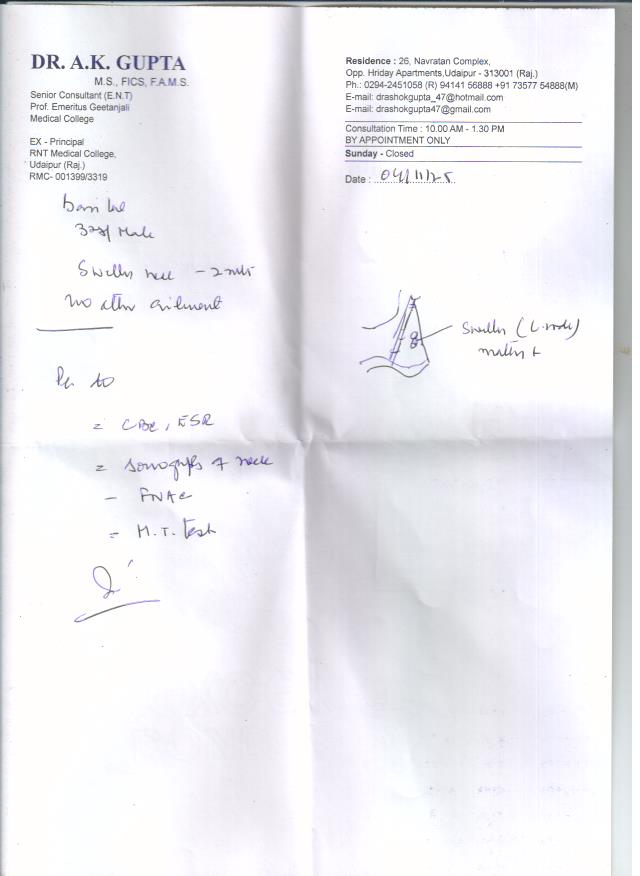 DR. A.K. GUPTA
M.S., FICS, F.A.M.S.
Senior Consultant (E.N.T)
Prof. Emeritus Geetanjali
Medical College
EX - Principal
RNT Medical College,
Udaipur (Raj.)
RMC- 001399/3319
Residence : 26, Navratan Complex,
Opp. Hriday Apartments,Udaipur - 313001 (Raj.)
Ph.: 0294-2451058 (R) 94141 56888 +91 73577 54888(M)
E-mail: drashokgupta_47@hotmail.com
E-mail: drashokgupta47@gmail.com
Consultation Time : 10.00 AM - 1.30 PM
BY APPOINTMENT ONLY
Sunday - Closed
Date : 04/11/25
Male
Swelling neck
No other ailment
Swelling (L. node)
+
to
= CBC, ESR
= Sonography of neck
- FNAC
= M.T. Test